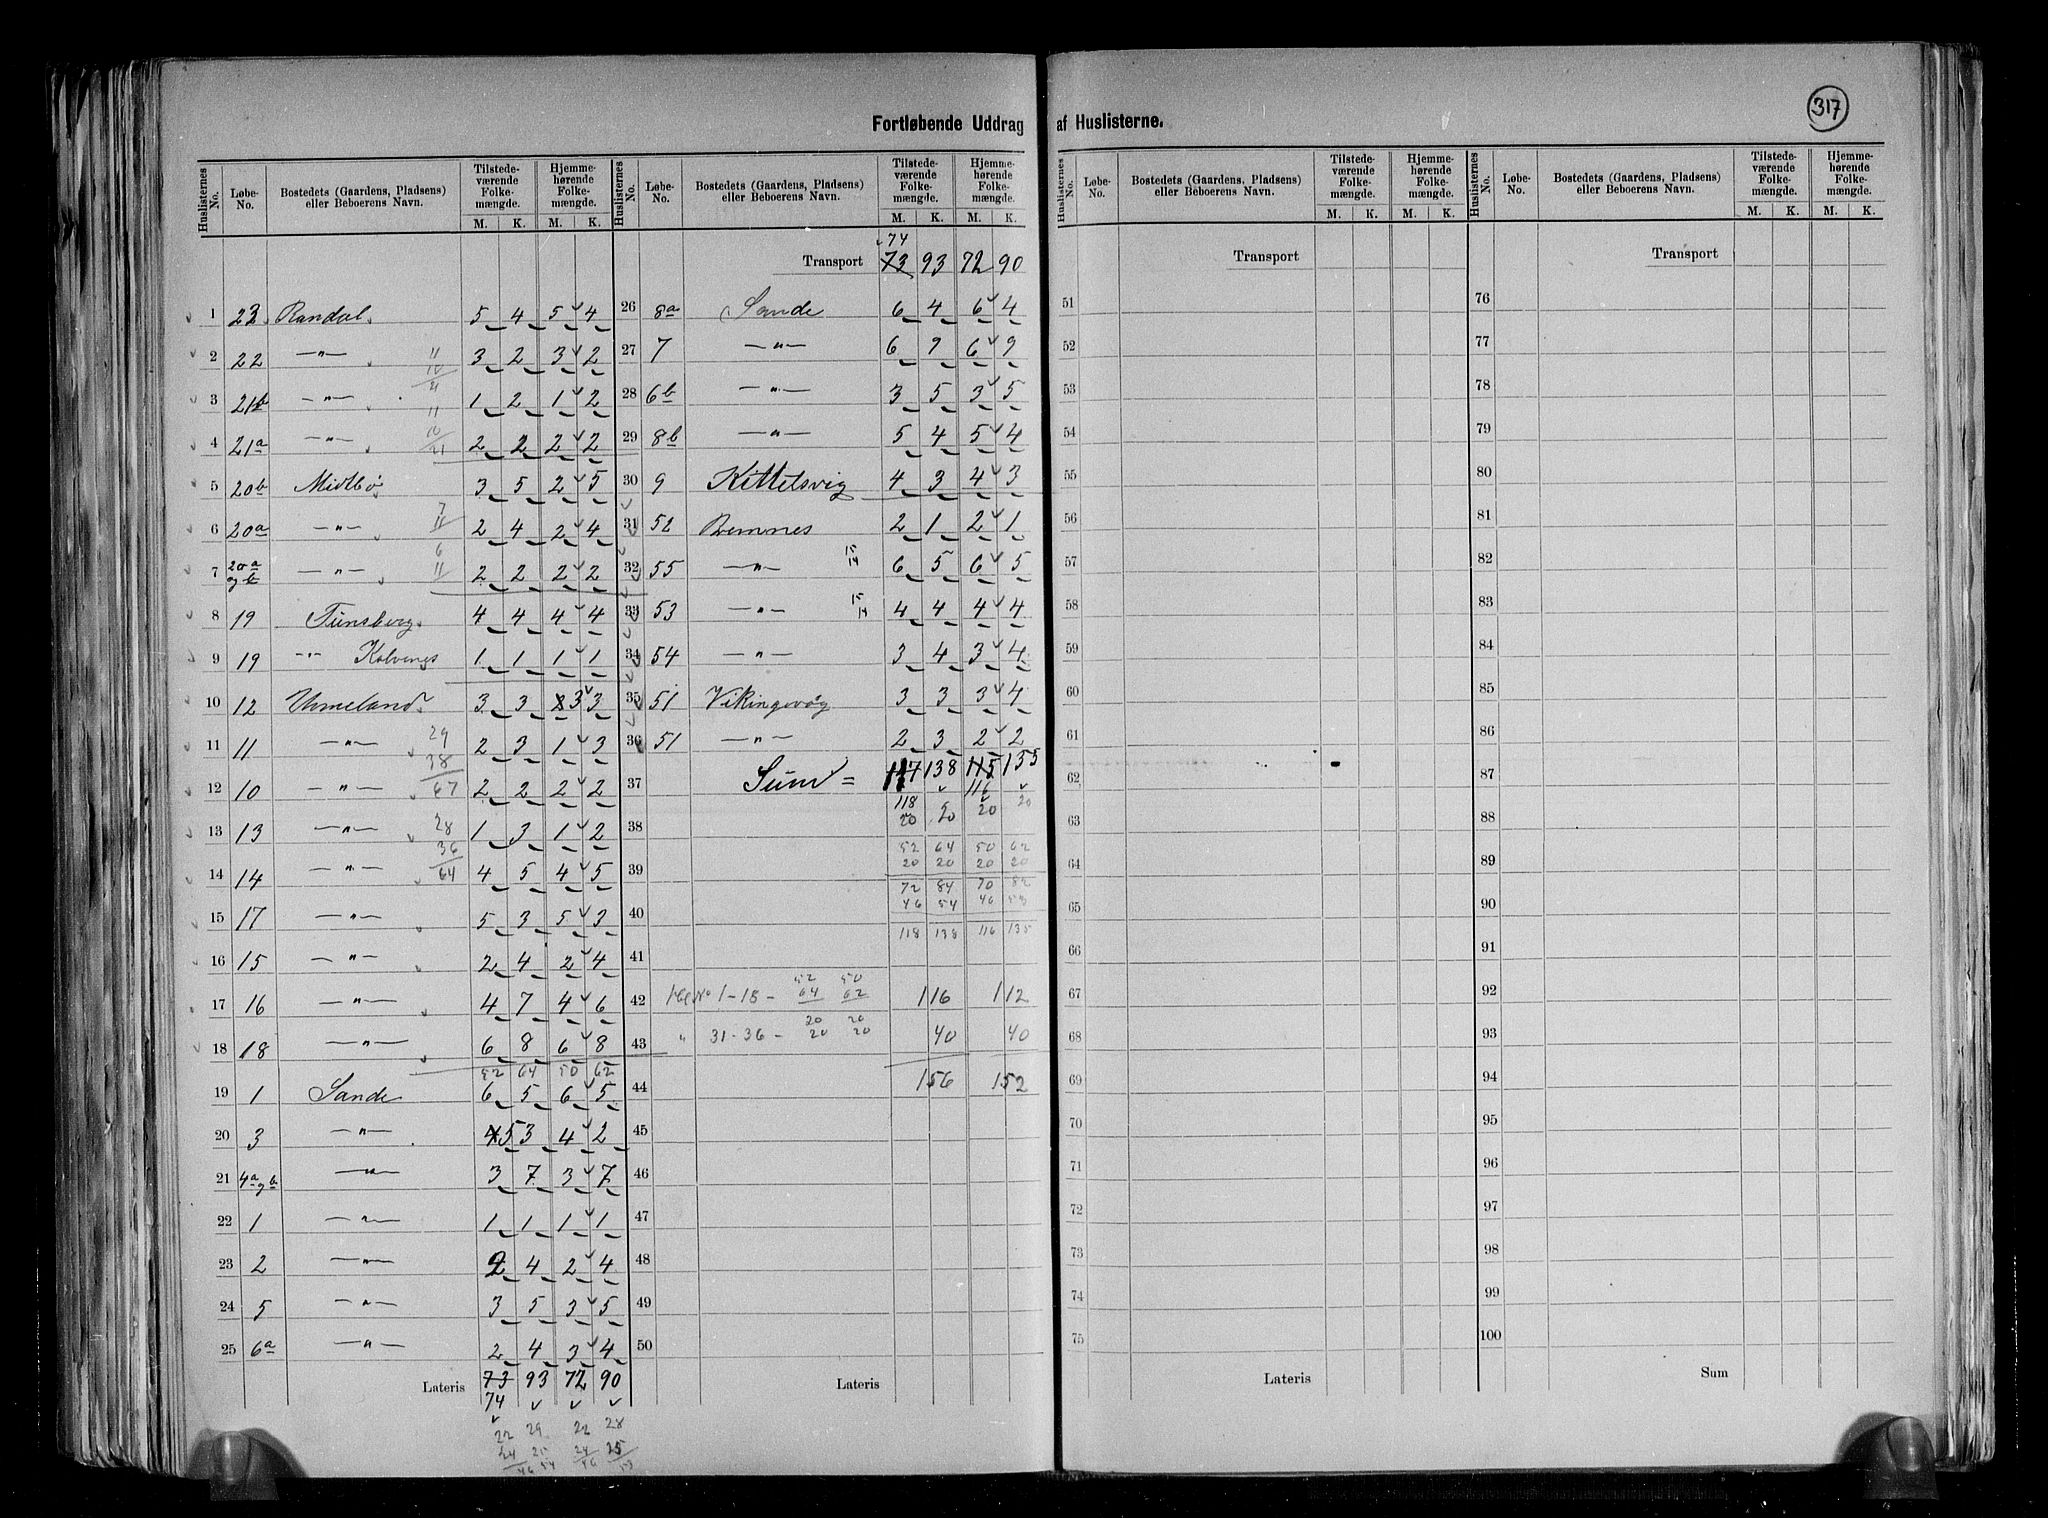 317
Fortløbende Uddrag af Huslisterne.
Huslisternes No. Løbe-No. Bostedets (Gaardens, Pladsens) eller Beboerens Navn. Tilstedeværende Folkemængde. M. K. Hjemmehørende Folkemængde. M. K.
1 23 Randal 5 4 5 4
2 22 —"— 3 2 3 2
3 21b —"— 1 2 1 2
4 21a —"— 2 2 2 2
5 20b Midtbø 3 5 2 5
6 20a —"— 2 4 2 4
7 20a og b —"— 2 2 2 2
8 19 Tunsberg 4 4 4 4
9 19 —"— Kolvenes 1 1 1 1
10 12 Ummeland 3 3 3 3
11 11 —"— 2 3 1 3
12 10 —"— 2 2 2 2
13 13 —"— 1 3 1 2
14 14 —"— 4 5 4 5
15 17 —"— 5 3 5 3
16 15 —"— 2 4 2 4
17 16 —"— 4 7 4 6
18 18 —"— 6 8 6 8
52 64 50 62
19 1 Sande 6 5 6 5
20 3 —"— 4 5 3 4 2
21 4a og b —"— 3 7 3 7
22 1 —"— 1 1 1 1
23 2 —"— 2 4 2 4
24 5 —"— 3 5 3 5
25 6a —"— 2 4 3 4
Lateris 73 93 72 90
74
22 29 22 28
24 25 24 25
46 54 46 53
Huslisternes No. Løbe-No. Bostedets (Gaardens, Pladsens) eller Beboerens Navn. Tilstedeværende Folkemængde. M. K. Hjemmehørende Folkemængde. M. K.
74
Transport 73 93 72 90
26 8a Sande 6 4 6 4
27 7 —"— 6 9 6 9
28 6b —"— 3 5 3 5
29 8b —"— 5 4 5 4
30 9 Kittelsvig 4 3 4 3
31 52 Bremnes 2 1 2 1
32 55 —"— 15 14 6 5 6 5
33 53 —"— 15 14 4 4 4 4
34 54 —"— 3 4 3 4
35 51 Vikingsvåg 3 3 3 4
36 51 —"— 2 3 2 2
37 Sum = 117 138 115 135
118 116
38 20 20 20 20
52 64 50 62
39 20 20 20 20
72 84 70 82
40 46 54 46 53
118 138 116 135
41
52 50
42 No 1-18 - 64 62 116 112
20 20
43 " 31-36 - 20 20 40 40
44 156 152
45
46
47
48
49
50
Lateris
Huslisternes No. Løbe-No. Bostedets (Gaardens, Pladsens) eller Beboerens Navn. Tilstedeværende Folkemængde. M. K. Hjemmehørende Folkemængde. M. K.
Transport
51
52
53
54
55
56
57
58
59
60
61
62
63
64
65
66
67
68
69
70
71
72
73
74
75
Lateris
Huslisternes No. Løbe-No. Bostedets (Gaardens, Pladsens) eller Beboerens Navn. Tilstedeværende Folkemængde. M. K. Hjemmehørende Folkemængde. M. K.
Transport
76
77
78
79
80
81
82
83
84
85
86
87
88
89
90
91
92
93
94
95
96
97
98
99
100
Sum